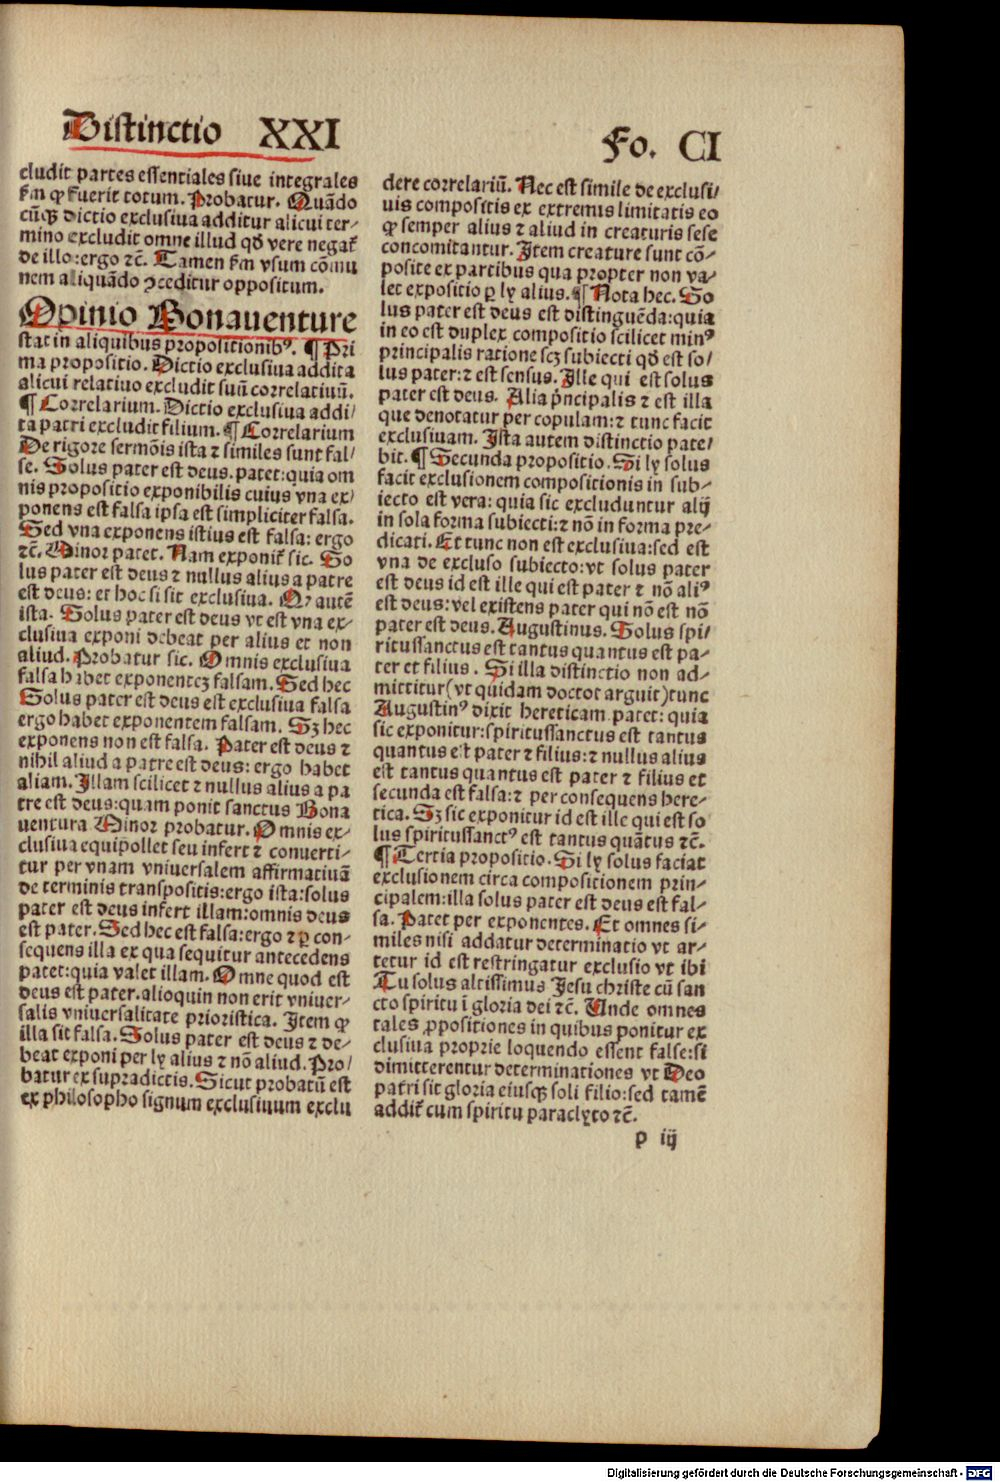 Distinctio XXI
Fo. CI
cludit partes essentiales siue integrales
fm̄ ꝙ fuerit totum. Probatur. Quādo
cūqꝫ dictio exclusiua additur alicui ter-
mino excludit omne illud qđ vere negat̄
de illo: ergo ⁊c̄. Tamen fm̄ vsum cōmu
nem aliquādo ꝯceditur oppositum.
Opinio Bonauenture
stat in aliquibus propositionibꝰ. ¶ Pri
ma propositio. Dictio exclusiua addita
alicui relatiuo excludit suū correlatiuū.
¶ Correlarium. Dictio exclusiua addi/
ta patri excludit filium. ¶ Correlarium
De rigore sermōis ista ⁊ similes sunt fal/
se. Solus pater est deus. patet: quia om
nis propositio exponibilis cuius vna ex/
ponens est falsa ipsa est simpliciter falsa.
Sed vna exponens istius est falsa: ergo
⁊c̄. Minor patet. Nam exponit̄ sic. So
lus pater est deus ⁊ nullus alius a patre
est deus: et hoc si sit exclusiua. Qꝛ autē
ista. Solus pater est deus vt est vna ex-
clusiua exponi debeat per alius et non
aliud. Probatur sic. Omnis exclusiua
falsa habet exponenteꝫ falsam. Sed hec
Solus pater est deus est exclusiua falsa
ergo habet exponentem falsam. Sꝫ hec
exponens non est falsa. Pater est deus ⁊
nihil aliud a patre est deus: ergo habet
aliam. Illam scilicet ⁊ nullus alius a pa
tre est deus: quam ponit sanctus Bona
uentura Minor probatur. Omnis ex-
clusiua equipollet seu infert ⁊ conuerti-
tur per vnam vniuersalem affirmatiuā
de terminis transpositis: ergo ista: solus
pater est deus infert illam: omnis deus
est pater. Sed hec est falsa: ergo ⁊ ꝑ con-
sequens illa ex qua sequitur antecedens
patet: quia valet illam. Omne quod est
deus est pater. alioquin non erit vniuer-
salis vniuersalitate prioristica. Item ꝙ
illa sit falsa. Solus pater est deus ⁊ de-
beat exponi per ly alius ⁊ nō aliud. Pro/
batur ex supradictis. Sicut probatū est
ex philosopho signum exclusiuum exclu
dere correlariū. Nec est simile de exclusi/
uis compositis ex extremis limitatis eo
ꝙ semper alius ⁊ aliud in creaturis sese
concomitantur. Item creature sunt cō-
posite ex partibus qua propter non va-
let expositio ꝑ ly alius. ¶ Nota hec. So
lus pater est deus est distinguēda: quia
in eo est duplex compositio scilicet minꝰ
principalis ratione scꝫ subiecti qđ est so/
lus pater: ⁊ est sensus. Ille qui est solus
pater est deus. Alia pͥncipalis ⁊ est illa
que denotatur per copulam: ⁊ tunc facit
exclusiuam. Ista autem distinctio pate/
bit. ¶ Secunda propositio. Si ly solus
facit exclusionem compositionis in sub-
iecto est vera: quia sic excluduntur alij
in sola forma subiecti: ⁊ nō in forma pre-
dicati. Et tunc non est exclusiua: sed est
vna de excluso subiecto: vt solus pater
est deus id est ille qui est pater ⁊ nō aliꝰ
est deus: vel existens pater qui nō est nō
pater est deus. Augustinus. Solus spi/
ritussanctus est tantus quantus est pa-
ter et filius. Si illa distinctio non ad-
mittitur (vt quidam doctor arguit) tunc
Augustinꝰ dixit hereticam. patet: quia
sic exponitur: spiritussanctus est tantus
quantus est pater ⁊ filius: ⁊ nullus alius
est tantus quantus est pater ⁊ filius et
secunda est falsa: ⁊ per consequens here-
tica. Sꝫ sic exponitur id est ille qui est so
lus spiritussanctꝰ est tantus quātus ⁊c̄.
¶ Tertia propositio. Si ly solus faciat
exclusionem circa compositionem prin-
cipalem: illa solus pater est deus est fal-
sa. Patet per exponentes. Et omnes si-
miles nisi addatur determinatio vt ar-
tetur id est restringatur exclusio vt ibi
Tu solus altissimus Jesu christe cū san
cto spiritu ī gloria dei ⁊c̄. Unde omnes
tales ꝓpositiones in quibus ponitur ex
clusiua proprie loquendo essent false: si
dimitterentur determinationes vt Deo
patri sit gloria eiusqꝫ soli filio: sed tamē
addit̄ cum spiritu paraclyto ⁊c̄.
p iij
Digitalisierung gefördert durch die Deutsche Forschungsgemeinschaft - DFG